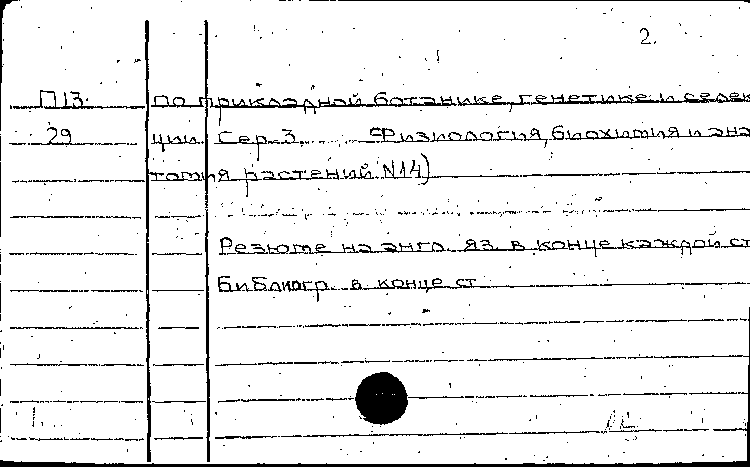 2.
П13. по прикладной ботанике, генетике и селек
29 ции. Сер. 3. Физиология, биохимия и ана
томия растений. N14)
Резюме на англ. яз. в конце каждой ст
Библиогр. в конце ст